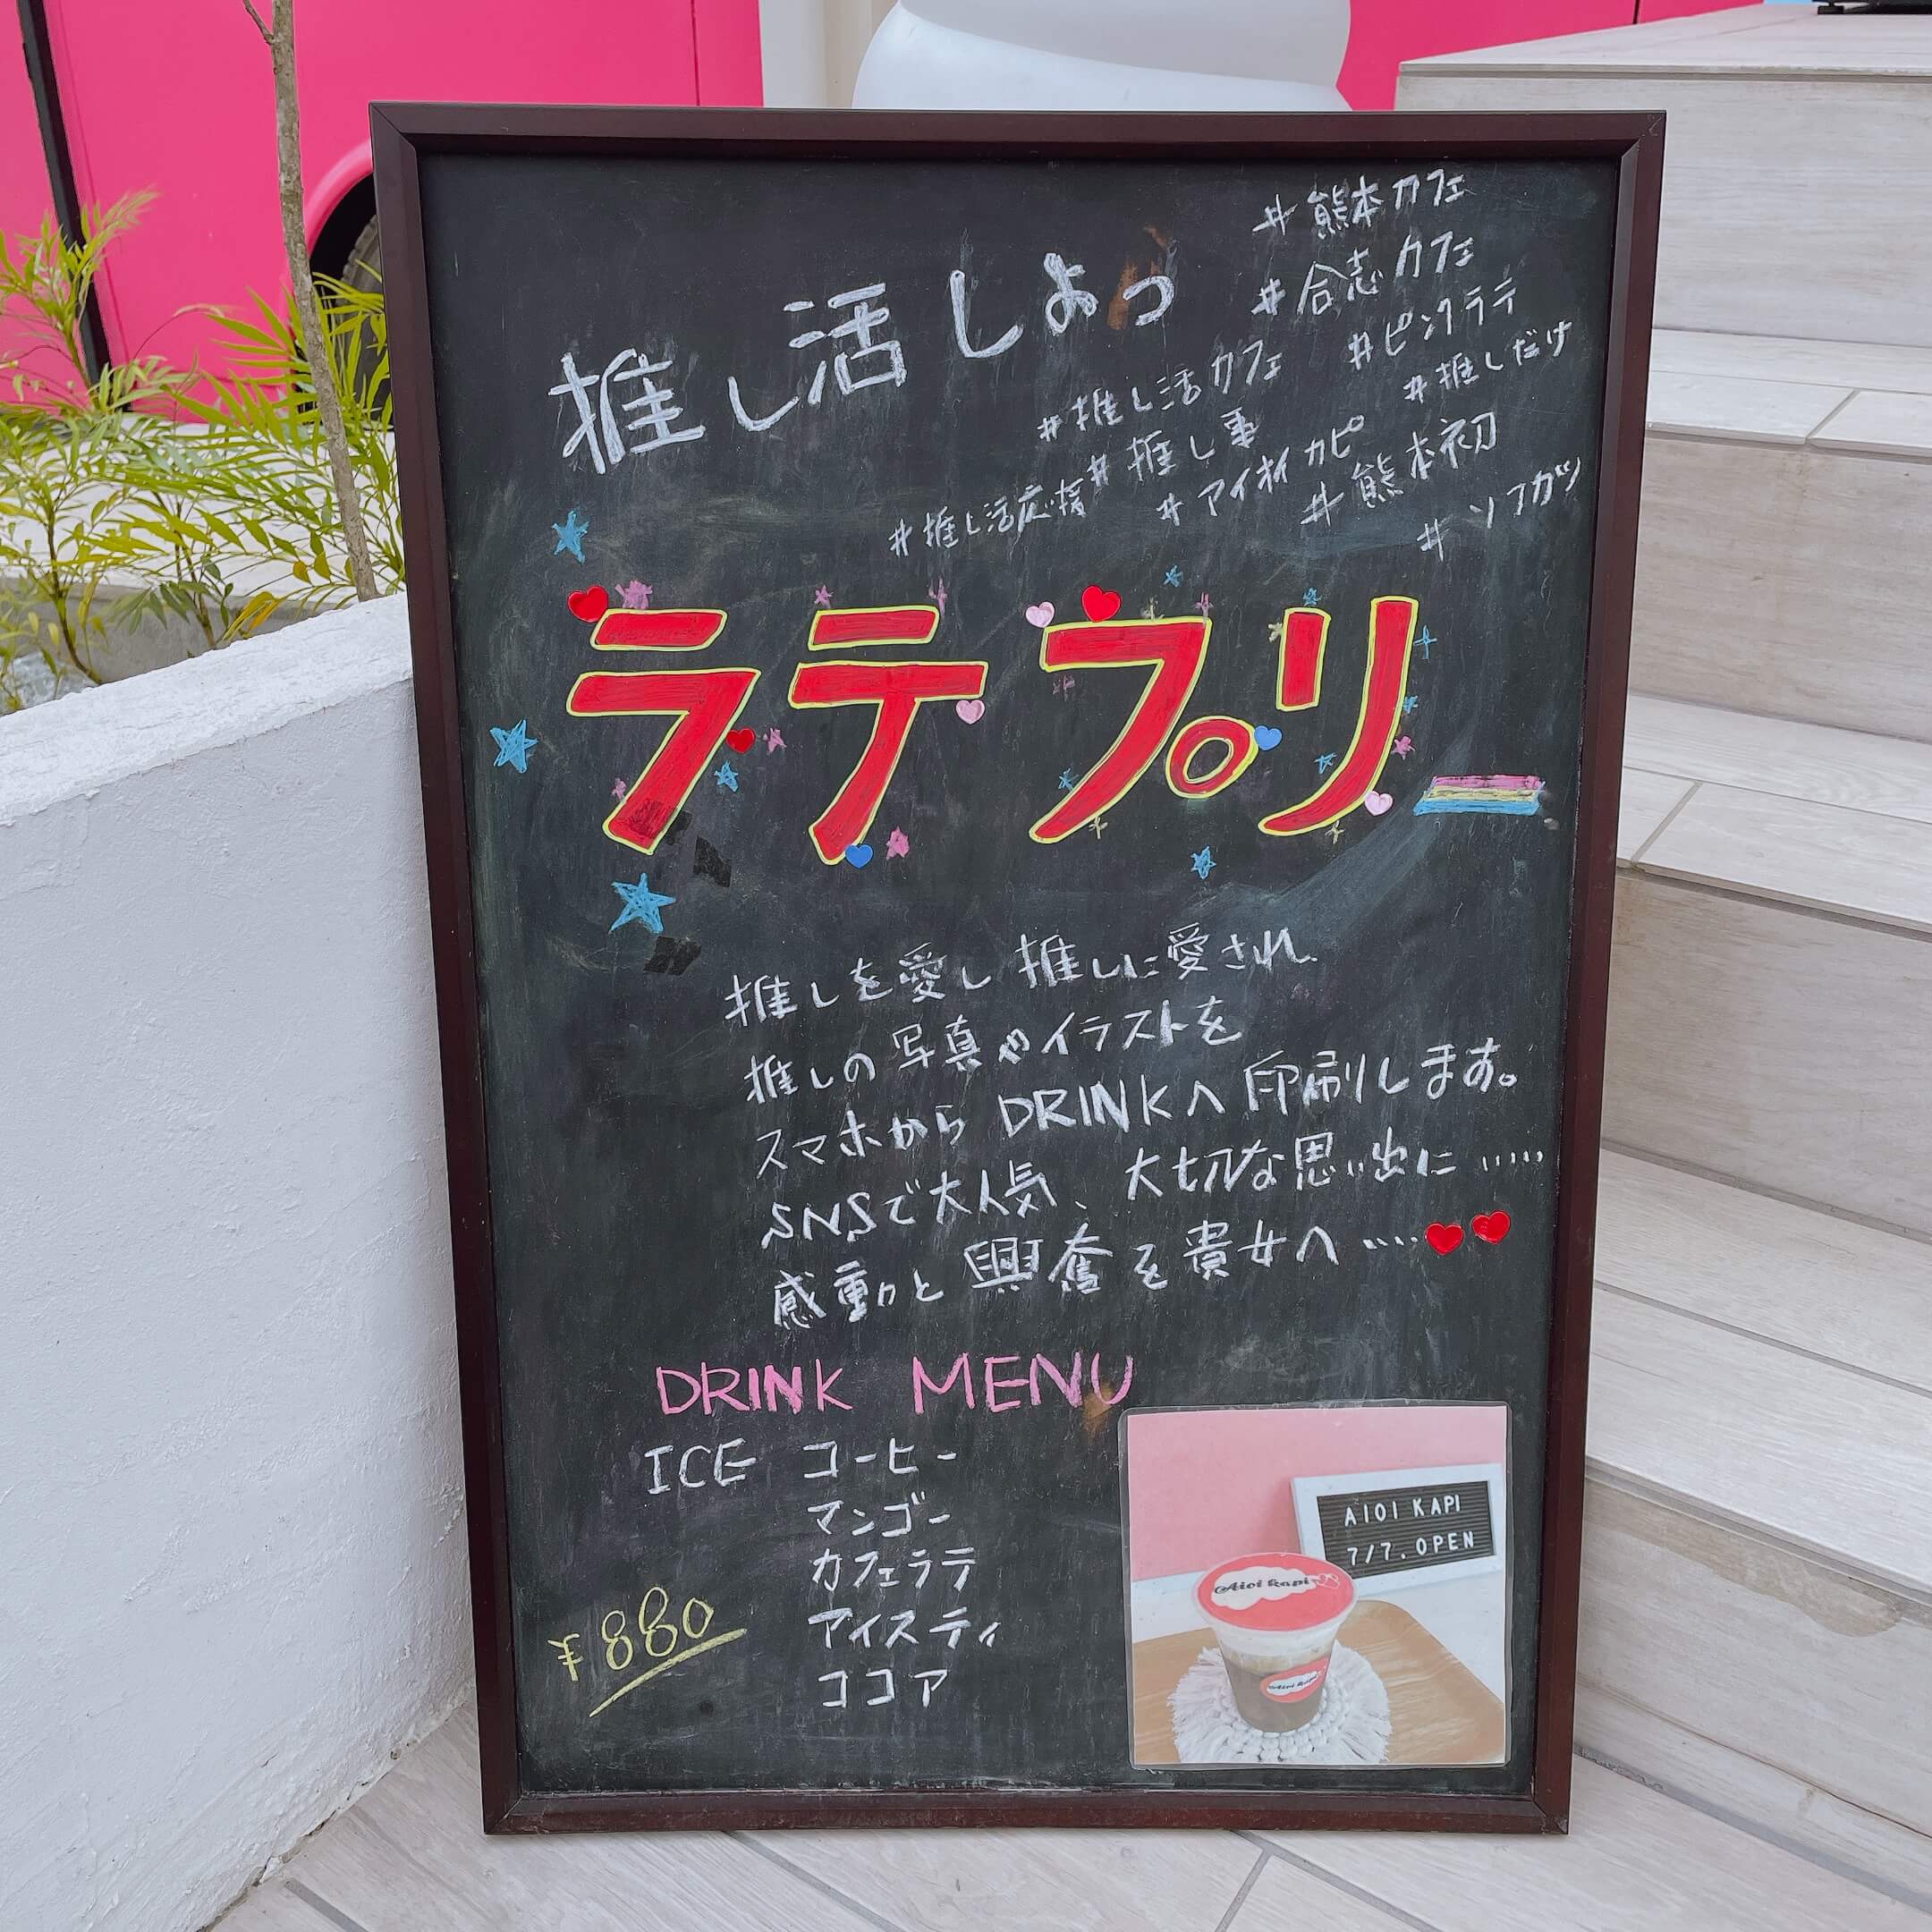 推し活しよっ
#熊本カフェ
#合志カフェ
#ピンクラテ
#推しだけ
#推し活カフェ
#推し事
#推し活応援
#アイオイカピ
#熊本初
#ソフガツ
ラテプリ
推しを愛し推しに愛され、
推しの写真やイラストを
スマホからDRINKへ印刷します。
SNSで大人気、大切な思い出に……
感動と興奮を貴女へ……
DRINK MENU
ICE コーヒー
マンゴー
カフェラテ
アイスティ
ココア
¥880
AIOI KAPI
7/7.OPEN
Aioi kapi
Aioi kapi